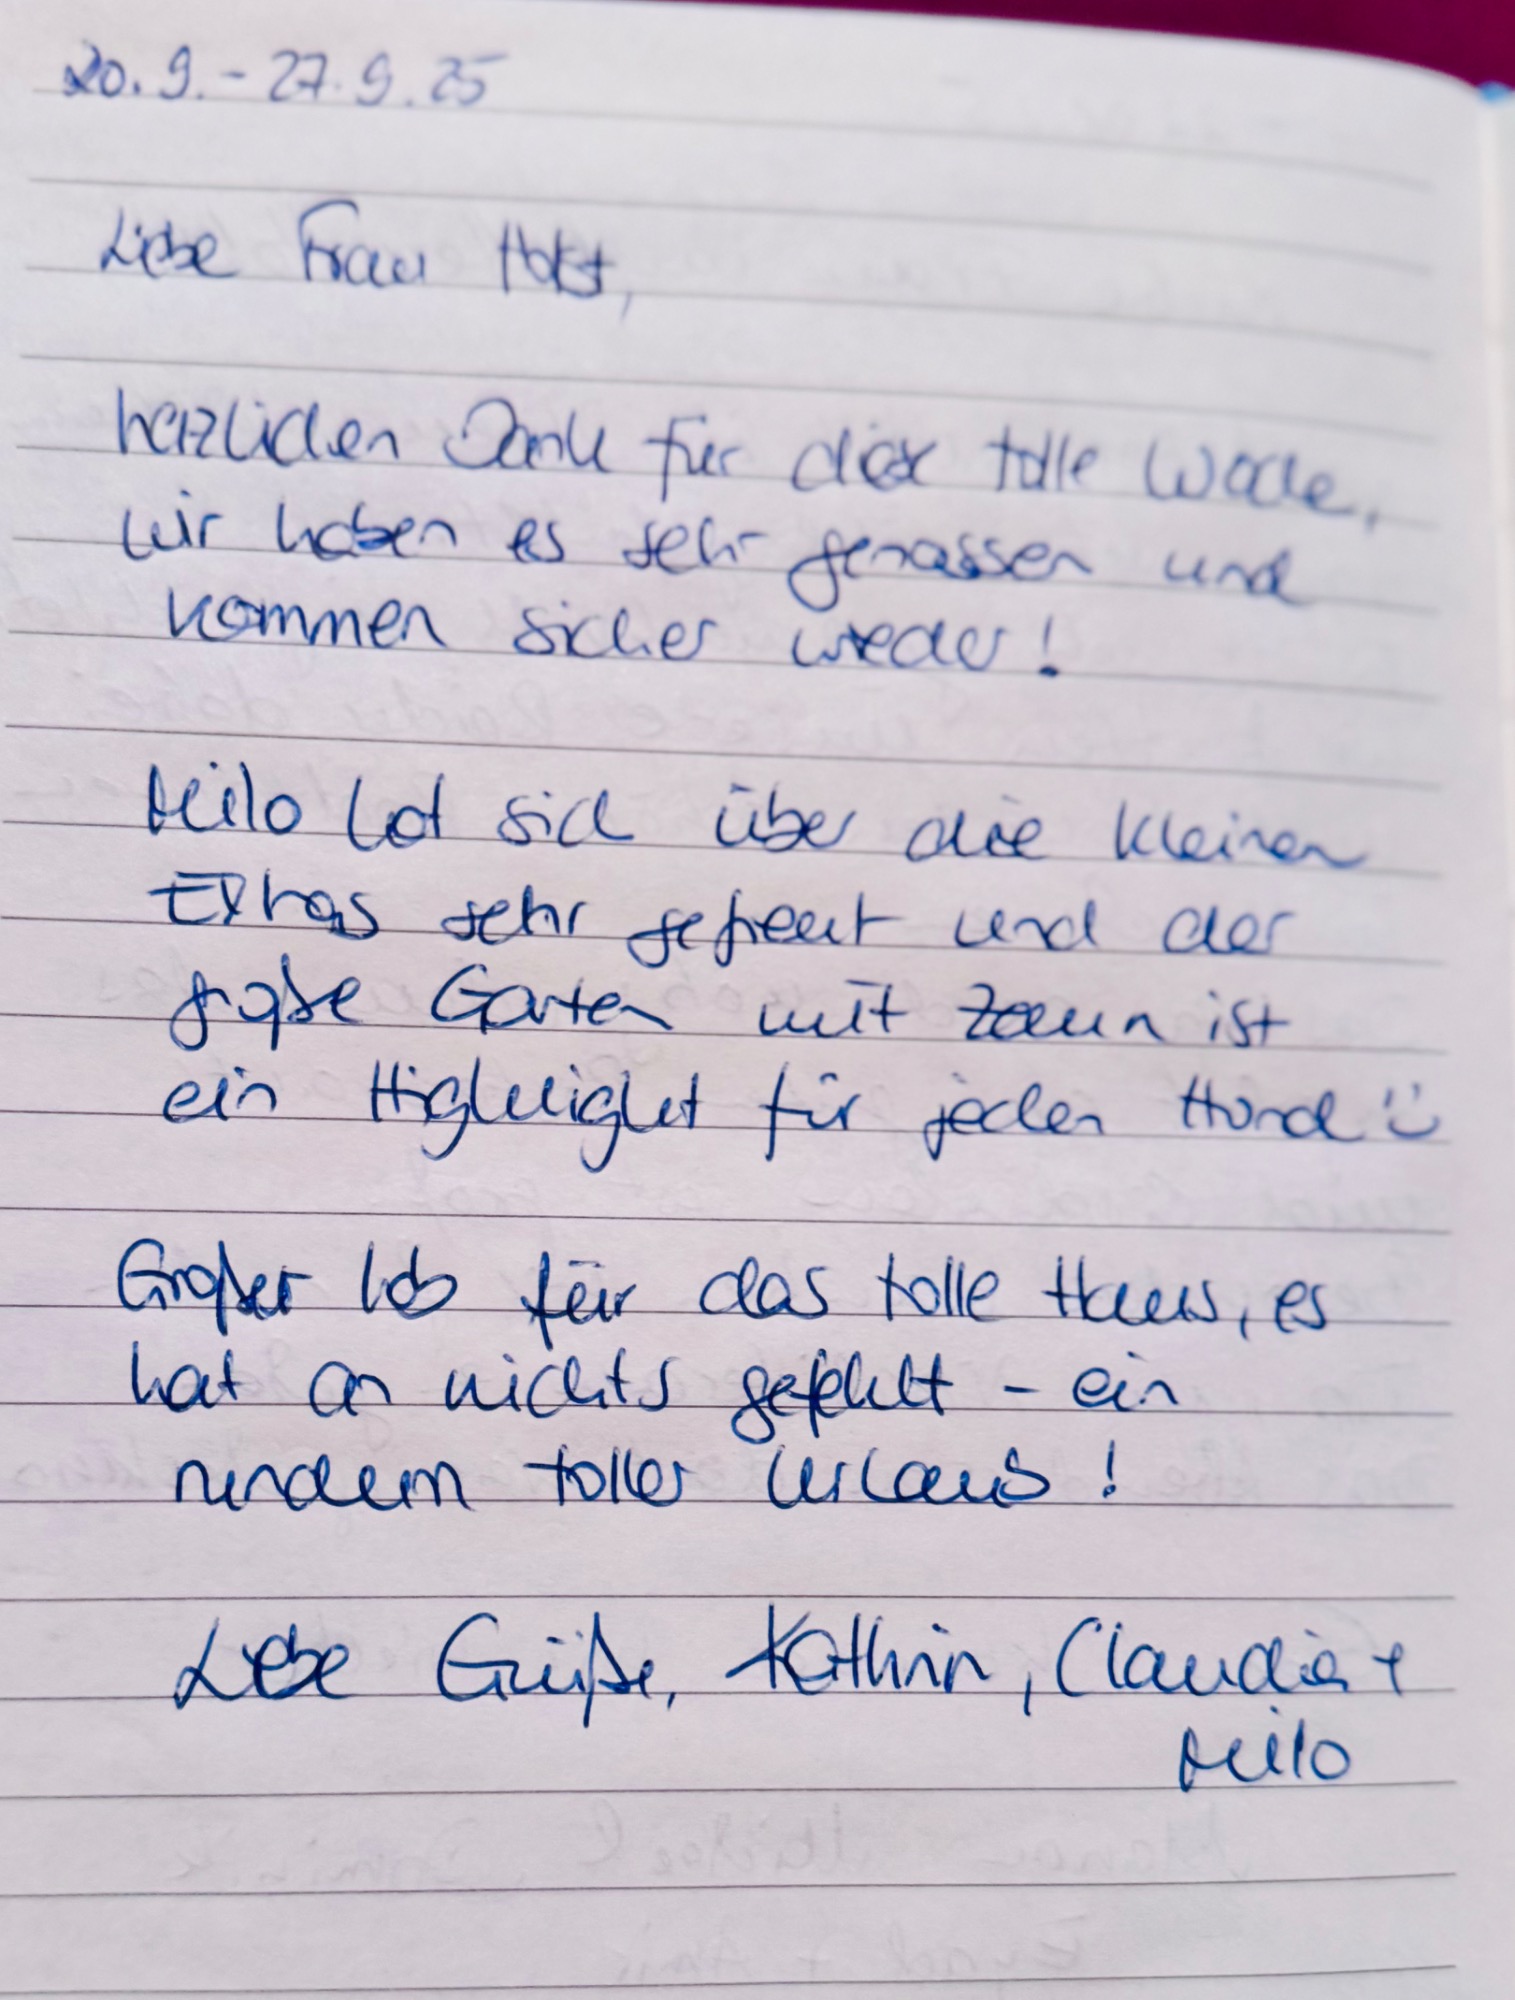 20.9. - 27.9.25
Liebe Frau Holst,
herzlichen Dank für die tolle Woche,
wir haben es sehr genossen und
kommen sicher wieder!
Milo hat sich über die kleinen
Extras sehr gefreut und der
große Garten mit Zaun ist
ein Highleight für jeden Hund ü
Großer Lob für das tolle Haus, es
hat an nichts gefehlt - ein
rundum toller Urlaub!
Liebe Grüße, Kathrin, Claudia +
Milo